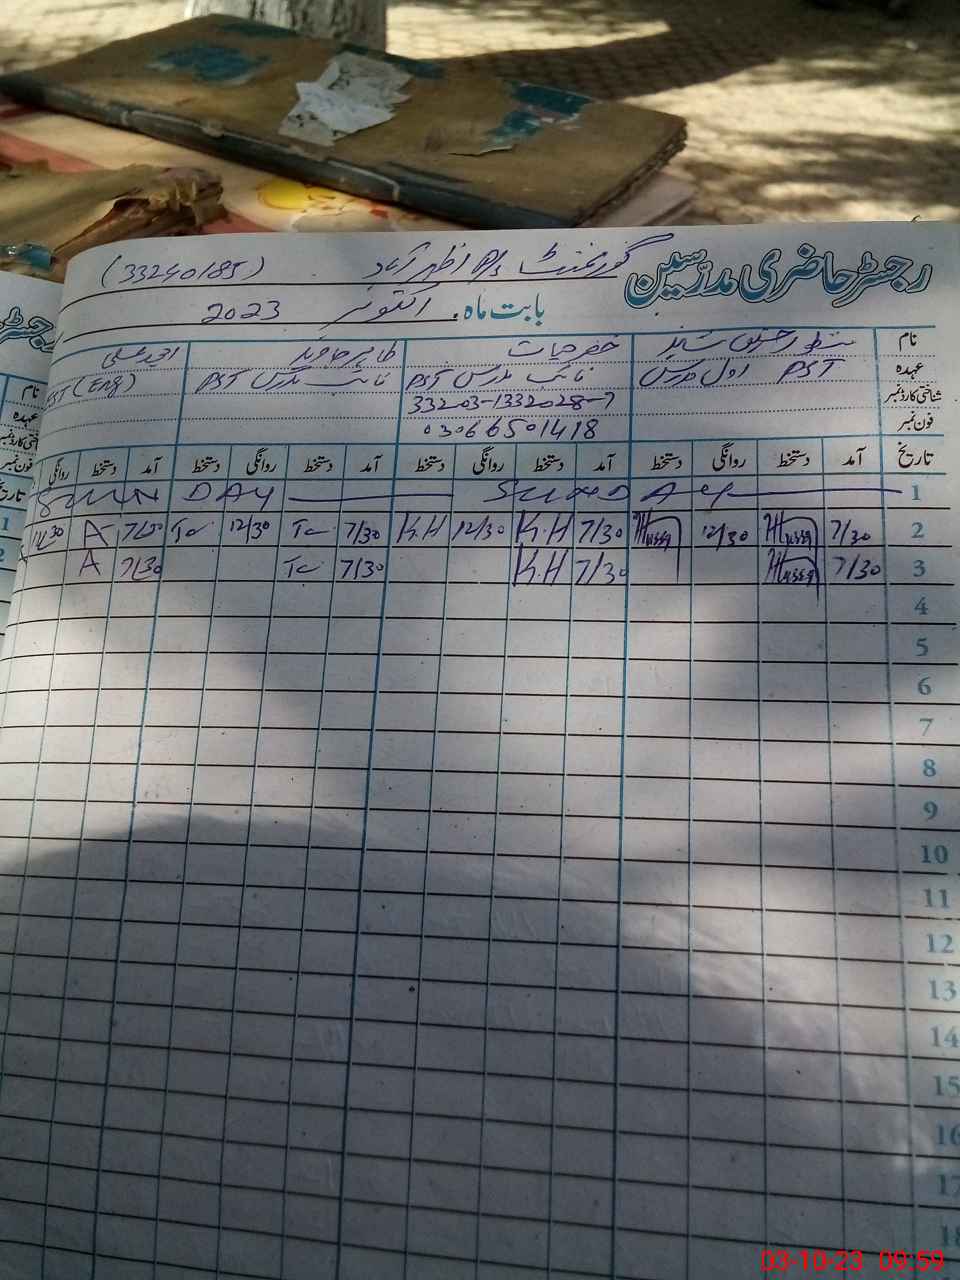 رجسٹر حاضری مدرسین گورنمنٹ P/S اظہر آباد (33240185)
بابت ماہ. اکتوبر 2023
نام خضر حیات طاہر جاوید
عہدہ PST اول مدرس PST نائب مدرس PST نائب مدرس PST (Eng)
شناختی کارڈ نمبر 33203-1332028-7
فون نمبر 03066501418
تاریخ آمد دستخط روانگی دستخط آمد دستخط روانگی دستخط آمد دستخط روانگی دستخط آمد دستخط روانگی
1 SUNDAY SUNDAY
2 7/30 12/30 7/30 K.H 12/30 K.H 7/30 Tc 12/30 Tc 7/30 A
3 7/30 7/30 K.H 7/30 Tc 7/30 A
4
5
6
7
8
9
10
11
12
13
14
15
16
17
18
رجسٹر
نام
عہدہ
فون نمبر
تاریخ
1
2
03-10-23 09:59